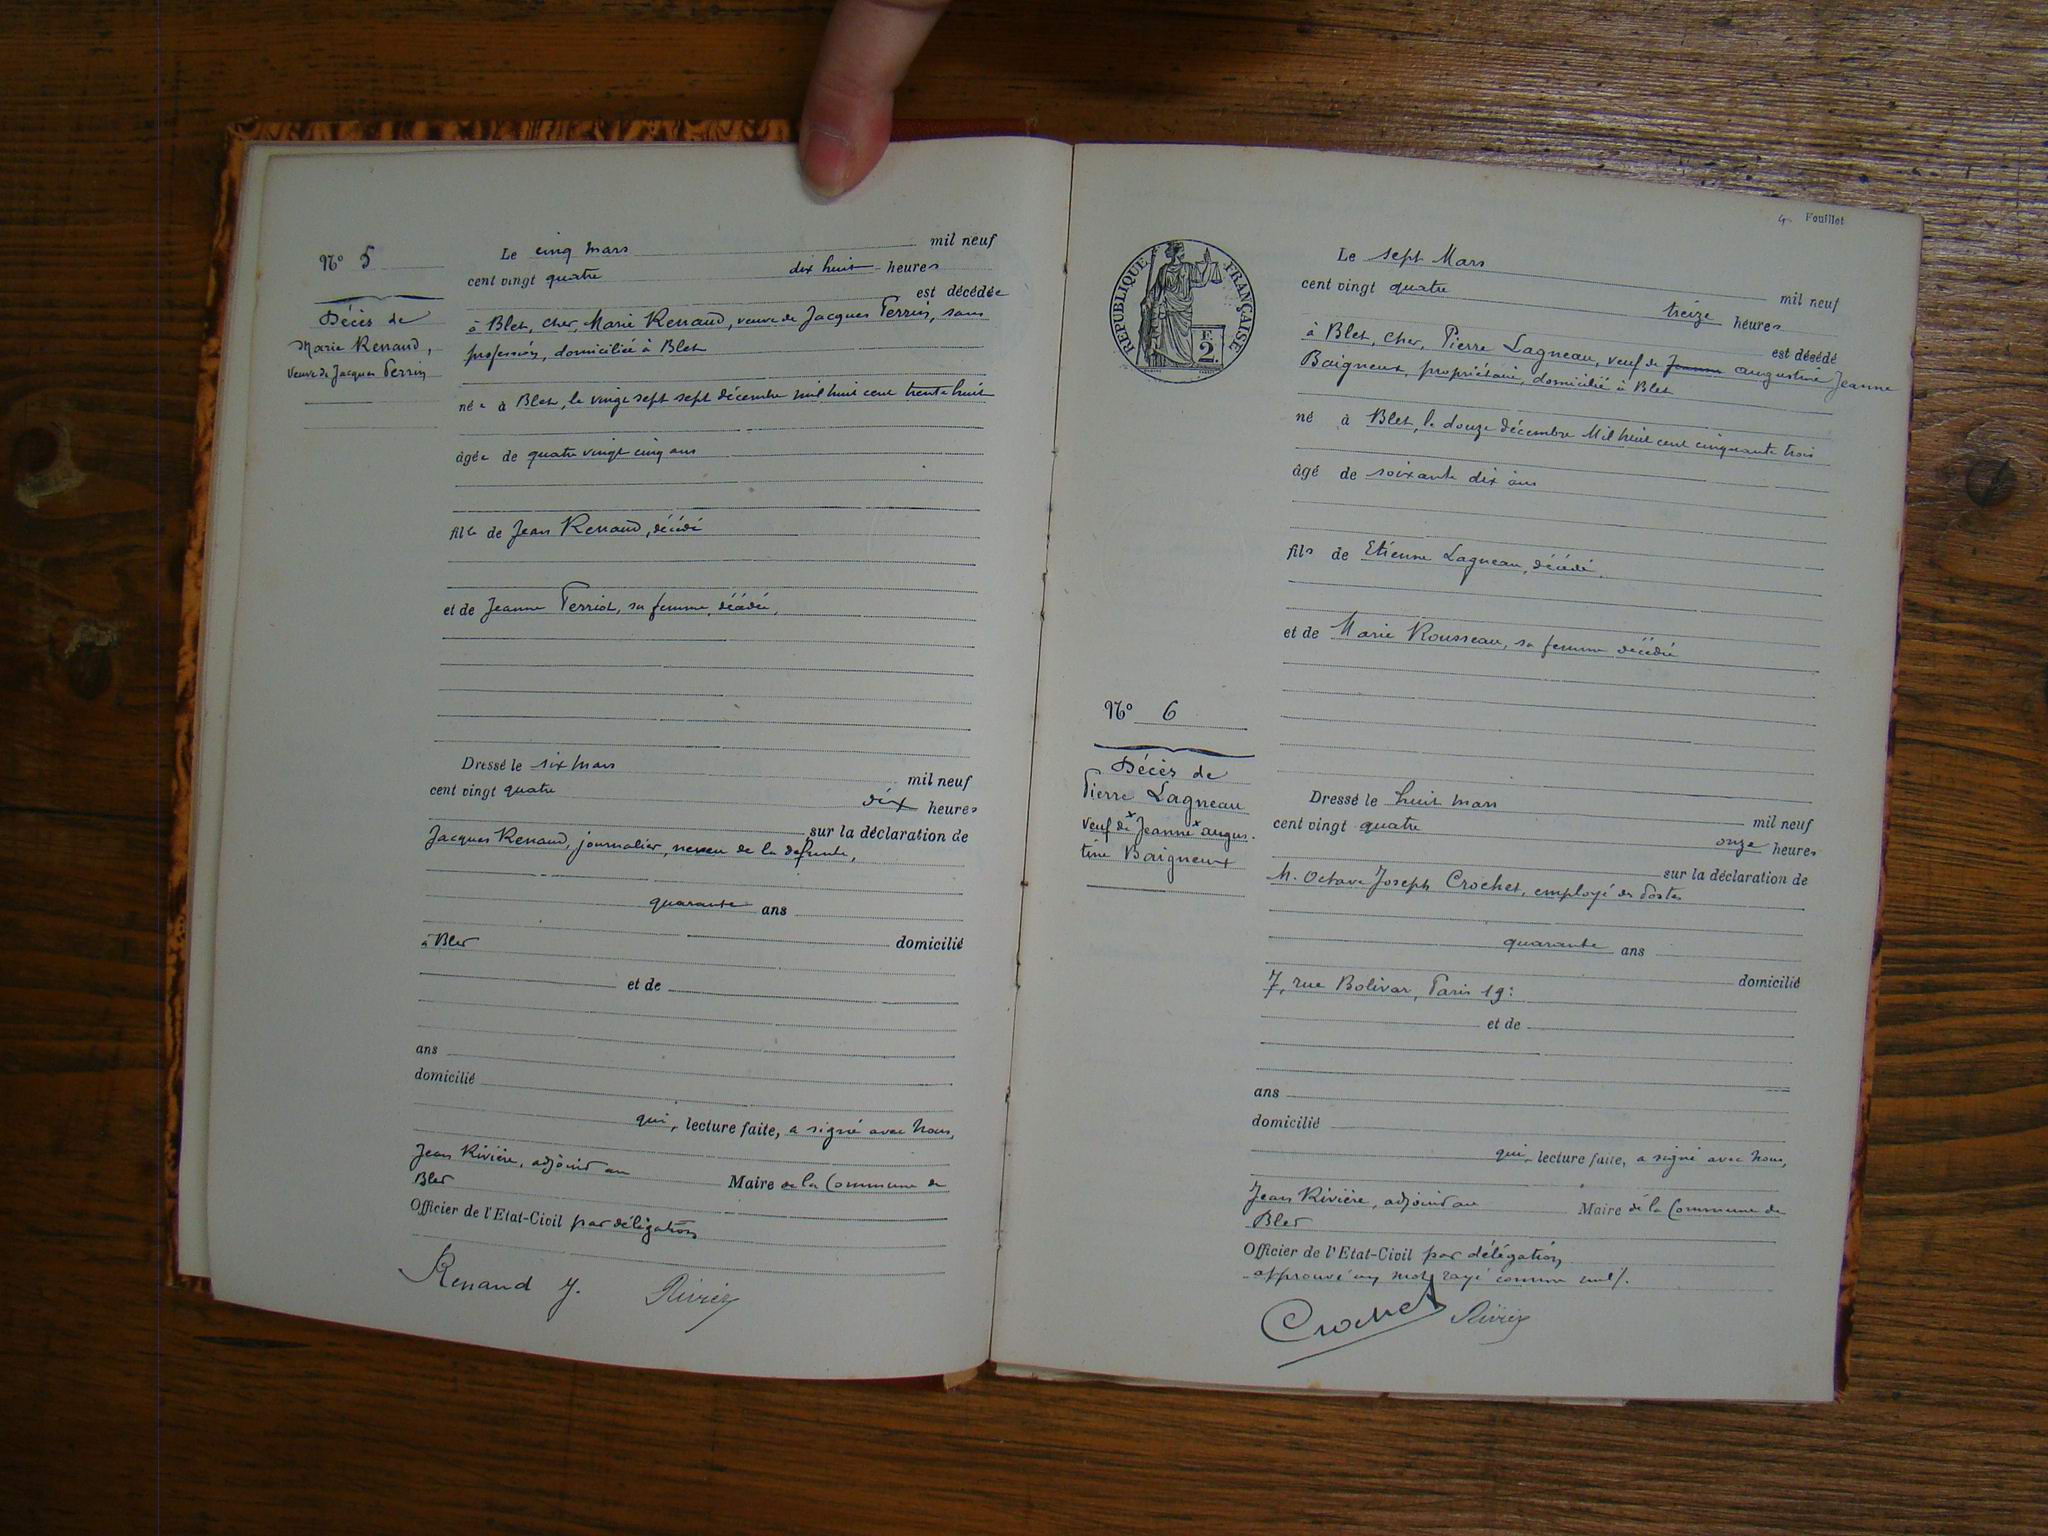 N° 5
Décès de
Marie Renaud,
veuve de Jacques Perrin
Le cinq mars mil neuf
cent vingt quatre dix huit heures
est décédée
à Blet, Cher, Marie Renaud, veuve de Jacques Perrin, sans
profession, domiciliée à Blet
née à Blet, le vingt sept sept décembre mil huit cent trente huit
âgée de quatre vingt cinq ans
fille de Jean Renaud, décédé
et de Jeanne Perriot, sa femme, décédée,
Dressé le six mars mil neuf
cent vingt quatre dix heures
sur la déclaration de
Jacques Renaud, journalier, neveu de la défunte,
quarante ans
domicilié
à Blet
et de
ans
domicilié
qui, lecture faite, a signé avec Nous,
Jean Rivière, adjoint au Maire de la Commune de
Blet
Officier de l'Etat-Civil par délégation
Renaud J. Rivière
4 Feuillet
REPUBLIQUE FRANÇAISE
F.
2
Le sept Mars mil neuf
cent vingt quatre treize heures
est décédé
à Blet, Cher, Pierre Lagneau, veuf de Jeanne augustine Jeanne
Baigneux, propriétaire, domicilié à Blet
né à Blet, le douze décembre Mil huit cent cinquante trois
âgé de soixante dix ans
fils de Etienne Lagneau, décédé,
et de Marie Rousseau, sa femme décédée
N° 6
Décès de
Pierre Lagneau
veuf de x Jeanne x augus-
tine Baigneux
Dressé le huit mars mil neuf
cent vingt quatre onze heures
sur la déclaration de
M. Octave Joseph Crochet, employé des Postes
quarante ans
domicilié
7, rue Bolivar, Paris 19e
et de
ans
domicilié
qui, lecture faite, a signé avec Nous,
Jean Rivière, adjoint au Maire de la Commune de
Blet
Officier de l'Etat-Civil par délégation
approuvé un mot rayé comme nul /.
Crochet Rivière